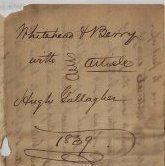 Whitehead & Berry
with
article
Hugh Gallagher
1839